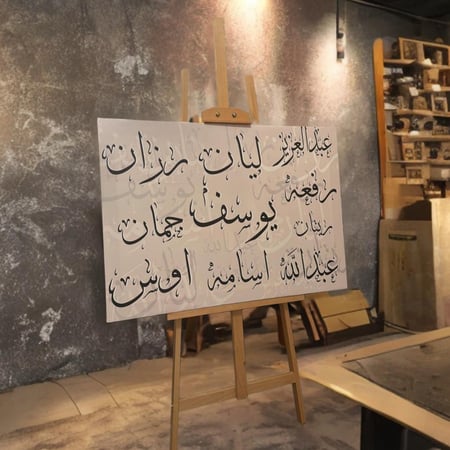 عبدالعزيز ليان رزان
رفعه يوسف جمان
ريتان
عبدالله اسامه اوس